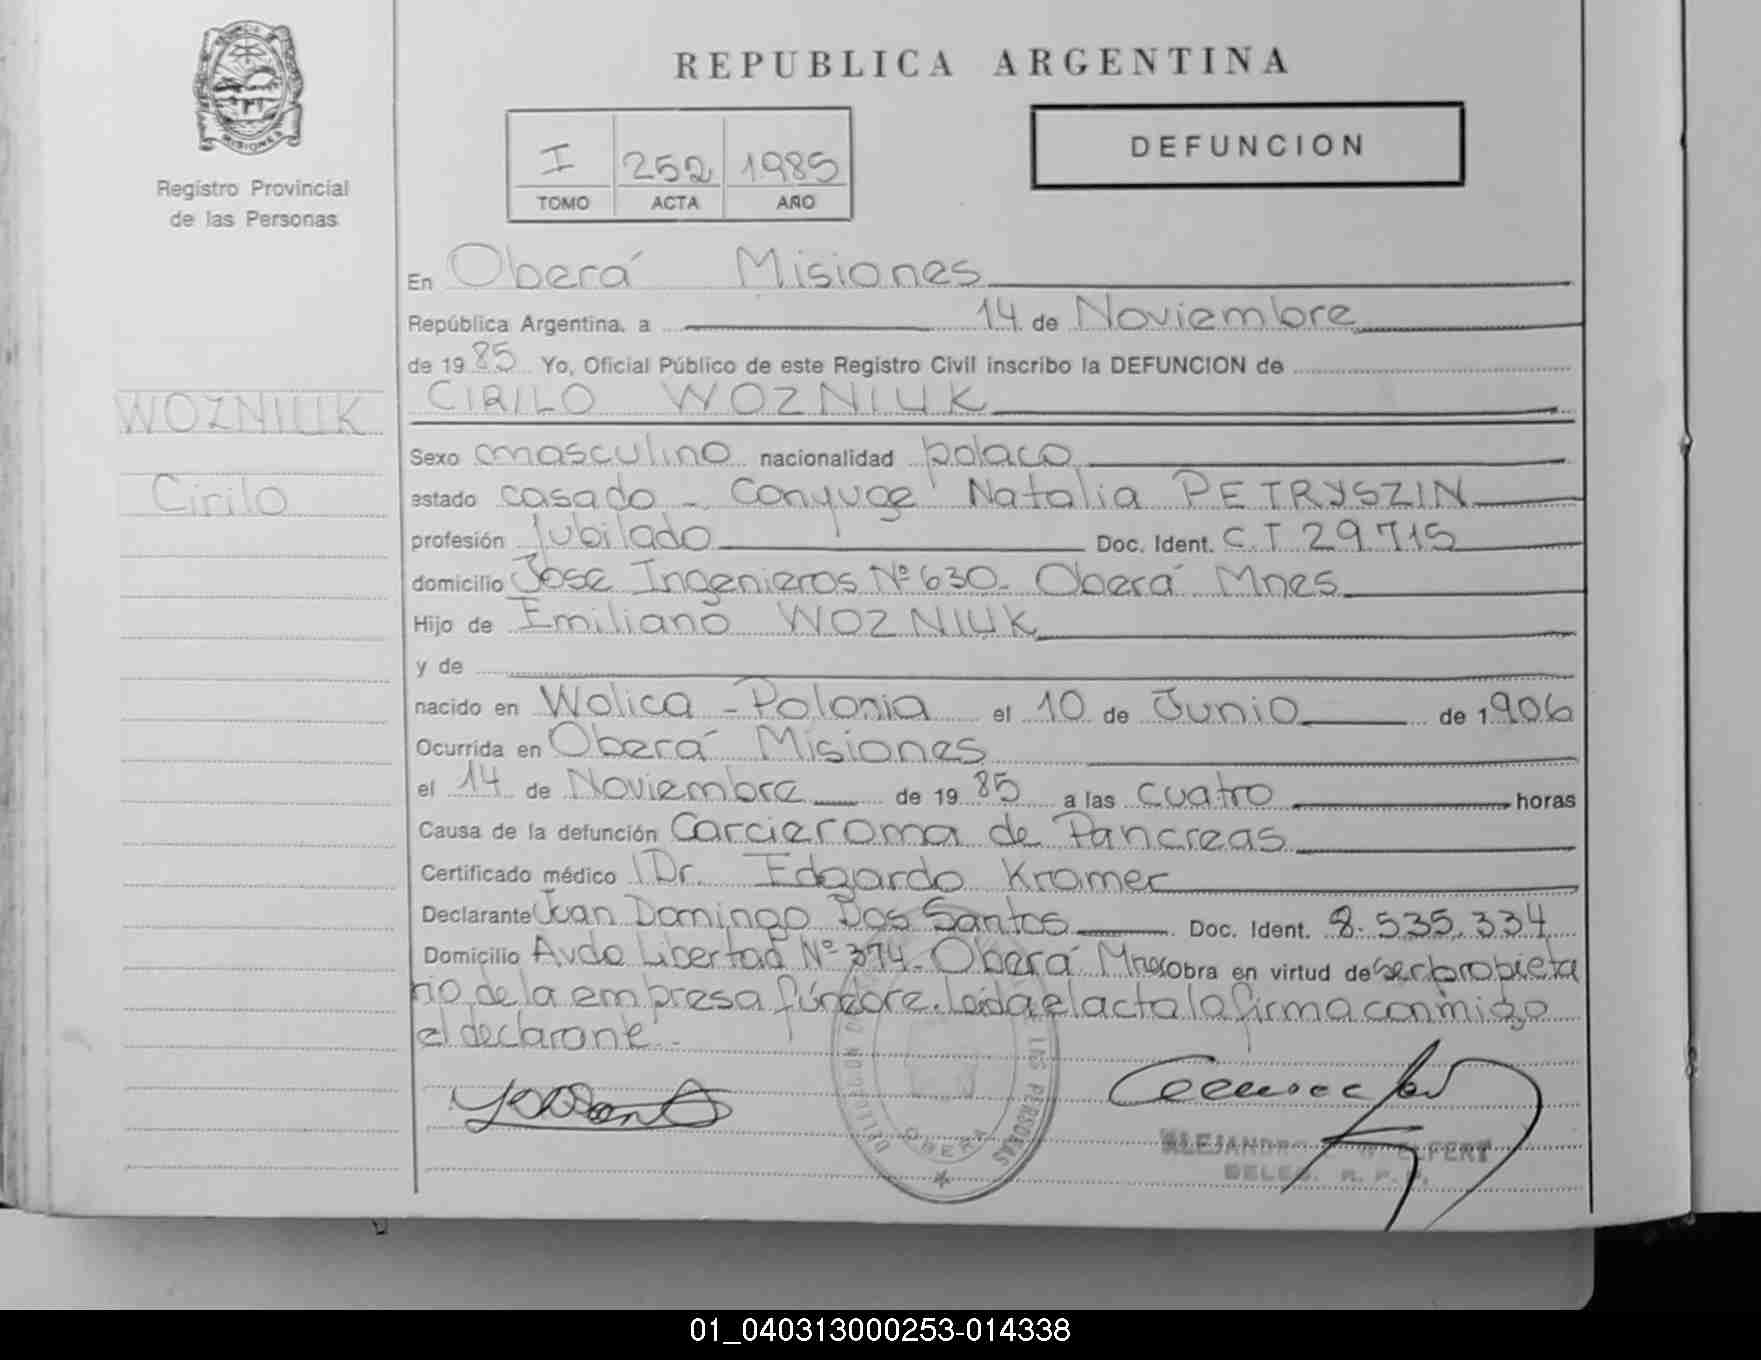 MISIONES
Registro Provincial
de las Personas
REPUBLICA ARGENTINA
I 252 1985
TOMO ACTA AÑO
DEFUNCION
En Oberá Misiones
República Argentina, a 14 de Noviembre
de 1985 Yo, Oficial Público de este Registro Civil inscribo la DEFUNCION de
CIRILO WOZNIUK
WOZNIUK
Cirilo
Sexo masculino nacionalidad polaco
estado casado - Conyuge Natalia PETRYSZIN
profesión Jubilado Doc. Ident. C.I 29.715
domicilio Jose Ingenieros Nº 630 - Oberá Mnes
Hijo de Emiliano WOZNIUK
y de
nacido en Wolica - Polonia el 10 de Junio de 1906
Ocurrida en Oberá Misiones
el 14 de Noviembre de 1985 a las cuatro horas
Causa de la defunción Carcieroma de Pancreas
Certificado médico Dr. Edgardo Kramer
Declarante Juan Domingo Dos Santos Doc. Ident. 8.535.334
Domicilio Avda Libertad Nº 374 - Oberá Mnes obra en virtud de ser propieta
rio de la empresa fúnebre. Leida el acta la firma conmigo
el declarante.-
LAS PERSONAS
OBERA
DELEG. R. P. P.
01_040313000253-014338